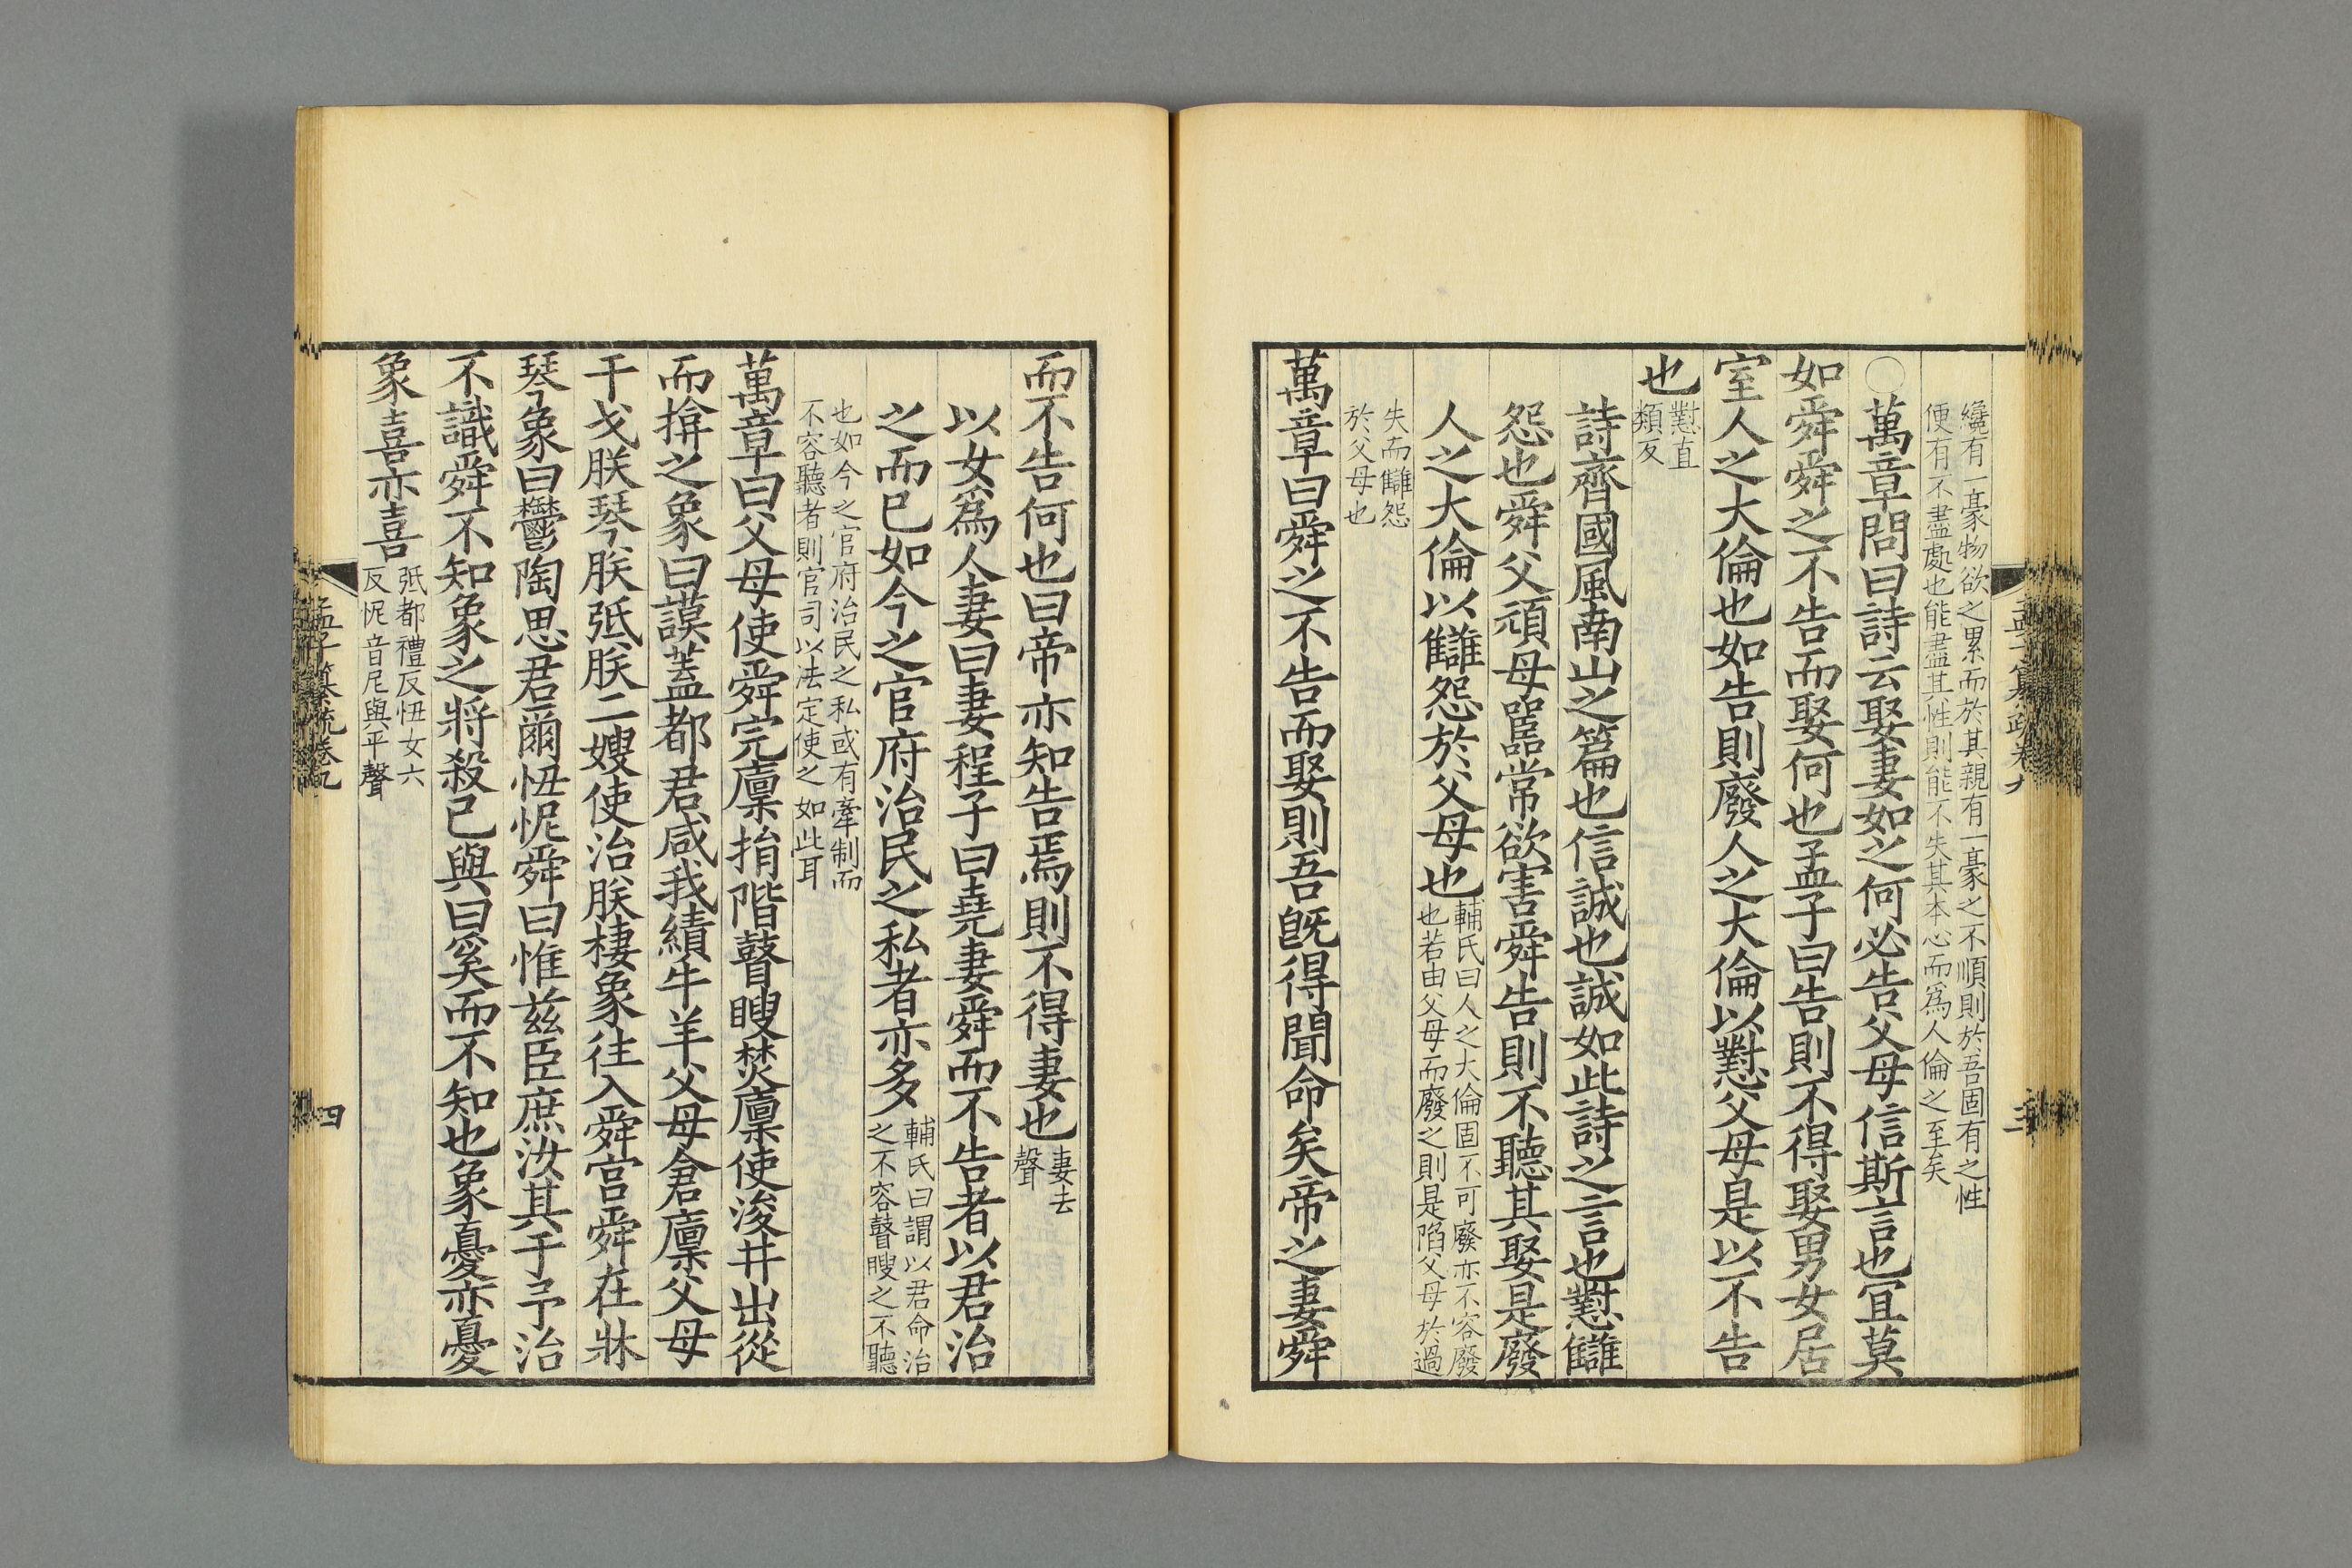 纔有一毫物欲之累而於其親有一毫之不順則於吾固有之性
便有不盡處也能盡其性則能不失其本心而爲人倫之至矣
○萬章問曰詩云娶妻如之何必告父母信斯言也宜莫
如舜舜之不告而娶何也孟子曰告則不得娶男女居
室人之大倫也如告則廢人之大倫以懟父母是以不告
也
懟直
類反
詩齊國風南山之篇也信誠也誠如此詩之言也懟讎
怨也舜父頑母嚚常欲害舜告則不聽其娶是廢
人之大倫以讎怨於父母也
輔氏曰人之大倫固不可廢亦不容廢
也若由父母而廢之則是陷父母於過
失而讎怨
於父母也
萬章曰舜之不告而娶則吾旣得聞命矣帝之妻舜
孟子纂疏卷九
三
而不告何也曰帝亦知告焉則不得妻也
妻去
聲
以女爲人妻曰妻程子曰堯妻舜而不告者以君治
之而已如今之官府治民之私者亦多
輔氏曰謂以君命治
之不容瞽瞍之不聽
也如今之官府治民之私或有牽制而
不容聽者則官司以法定使之如此耳
萬章曰父母使舜完廩捐階瞽瞍焚廩使浚井出從
而揜之象曰謨蓋都君咸我績牛羊父母倉廩父母
干戈朕琴朕弤朕二嫂使治朕棲象往入舜宮舜在牀
琴象曰鬱陶思君爾忸怩舜曰惟茲臣庶汝其于予治
不識舜不知象之將殺己與曰奚而不知也象憂亦憂
象喜亦喜
弤都禮反忸女六
反怩音尼與平聲
孟子纂疏卷九
四